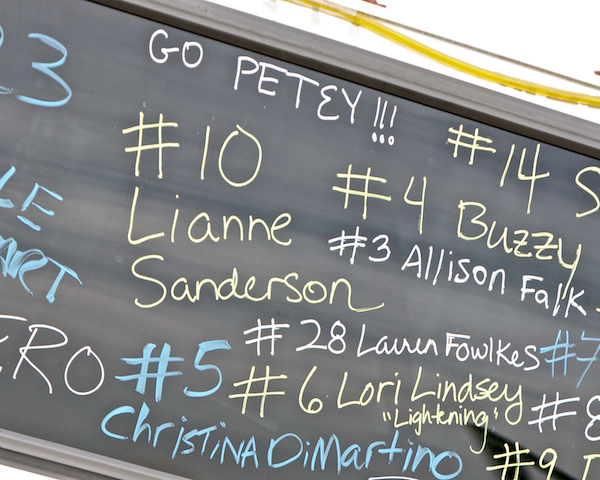 GO PETEY!!!
23
#10
Lianne
Sanderson
#14 S
#4 Buzzy
#3 Allison Falk
#28 Lauren Fowlkes
#7
#5
Christina DiMartino
#6 Lori Lindsey
"Lightening"
#8
#9